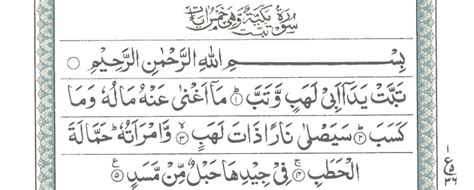 سُوْرَةُ تَبَّتْ مَكِّيَّةٌ وَّهِيَ خَمْسُ اٰيَاتٍ
بِسْمِ اللّٰهِ الرَّحْمٰنِ الرَّحِيْمِ ○
تَبَّتْ يَدَآ اَبِيْ لَهَبٍ وَّتَبَّ ۝۱ مَآ اَغْنٰى عَنْهُ مَالُهٗ وَمَا
كَسَبَ ۝۲ سَيَصْلٰى نَارًا ذَاتَ لَهَبٍ ۝۳ وَّامْرَاَتُهٗ ؕ حَمَّالَةَ
الْحَطَبِ ۝۴ فِيْ جِيْدِهَا حَبْلٌ مِّنْ مَّسَدٍ ۝۵